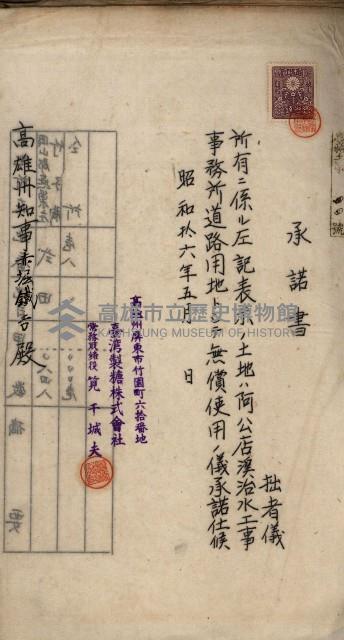 承諾書
拙者儀
所有ニ係ル左記表示ノ土地ハ阿公店溪治水工事
事務所道路用地トシテ無償使用ノ儀承諾仕候
昭和拾六年五月 日
高雄州屏東市竹園町六拾番地
臺灣製糖株式會社
常務取締役 筧干城夫
高雄州知事赤堀鐵吉殿
高雄市立歷史博物館
KAOHSIUNG MUSEUM OF HISTORY